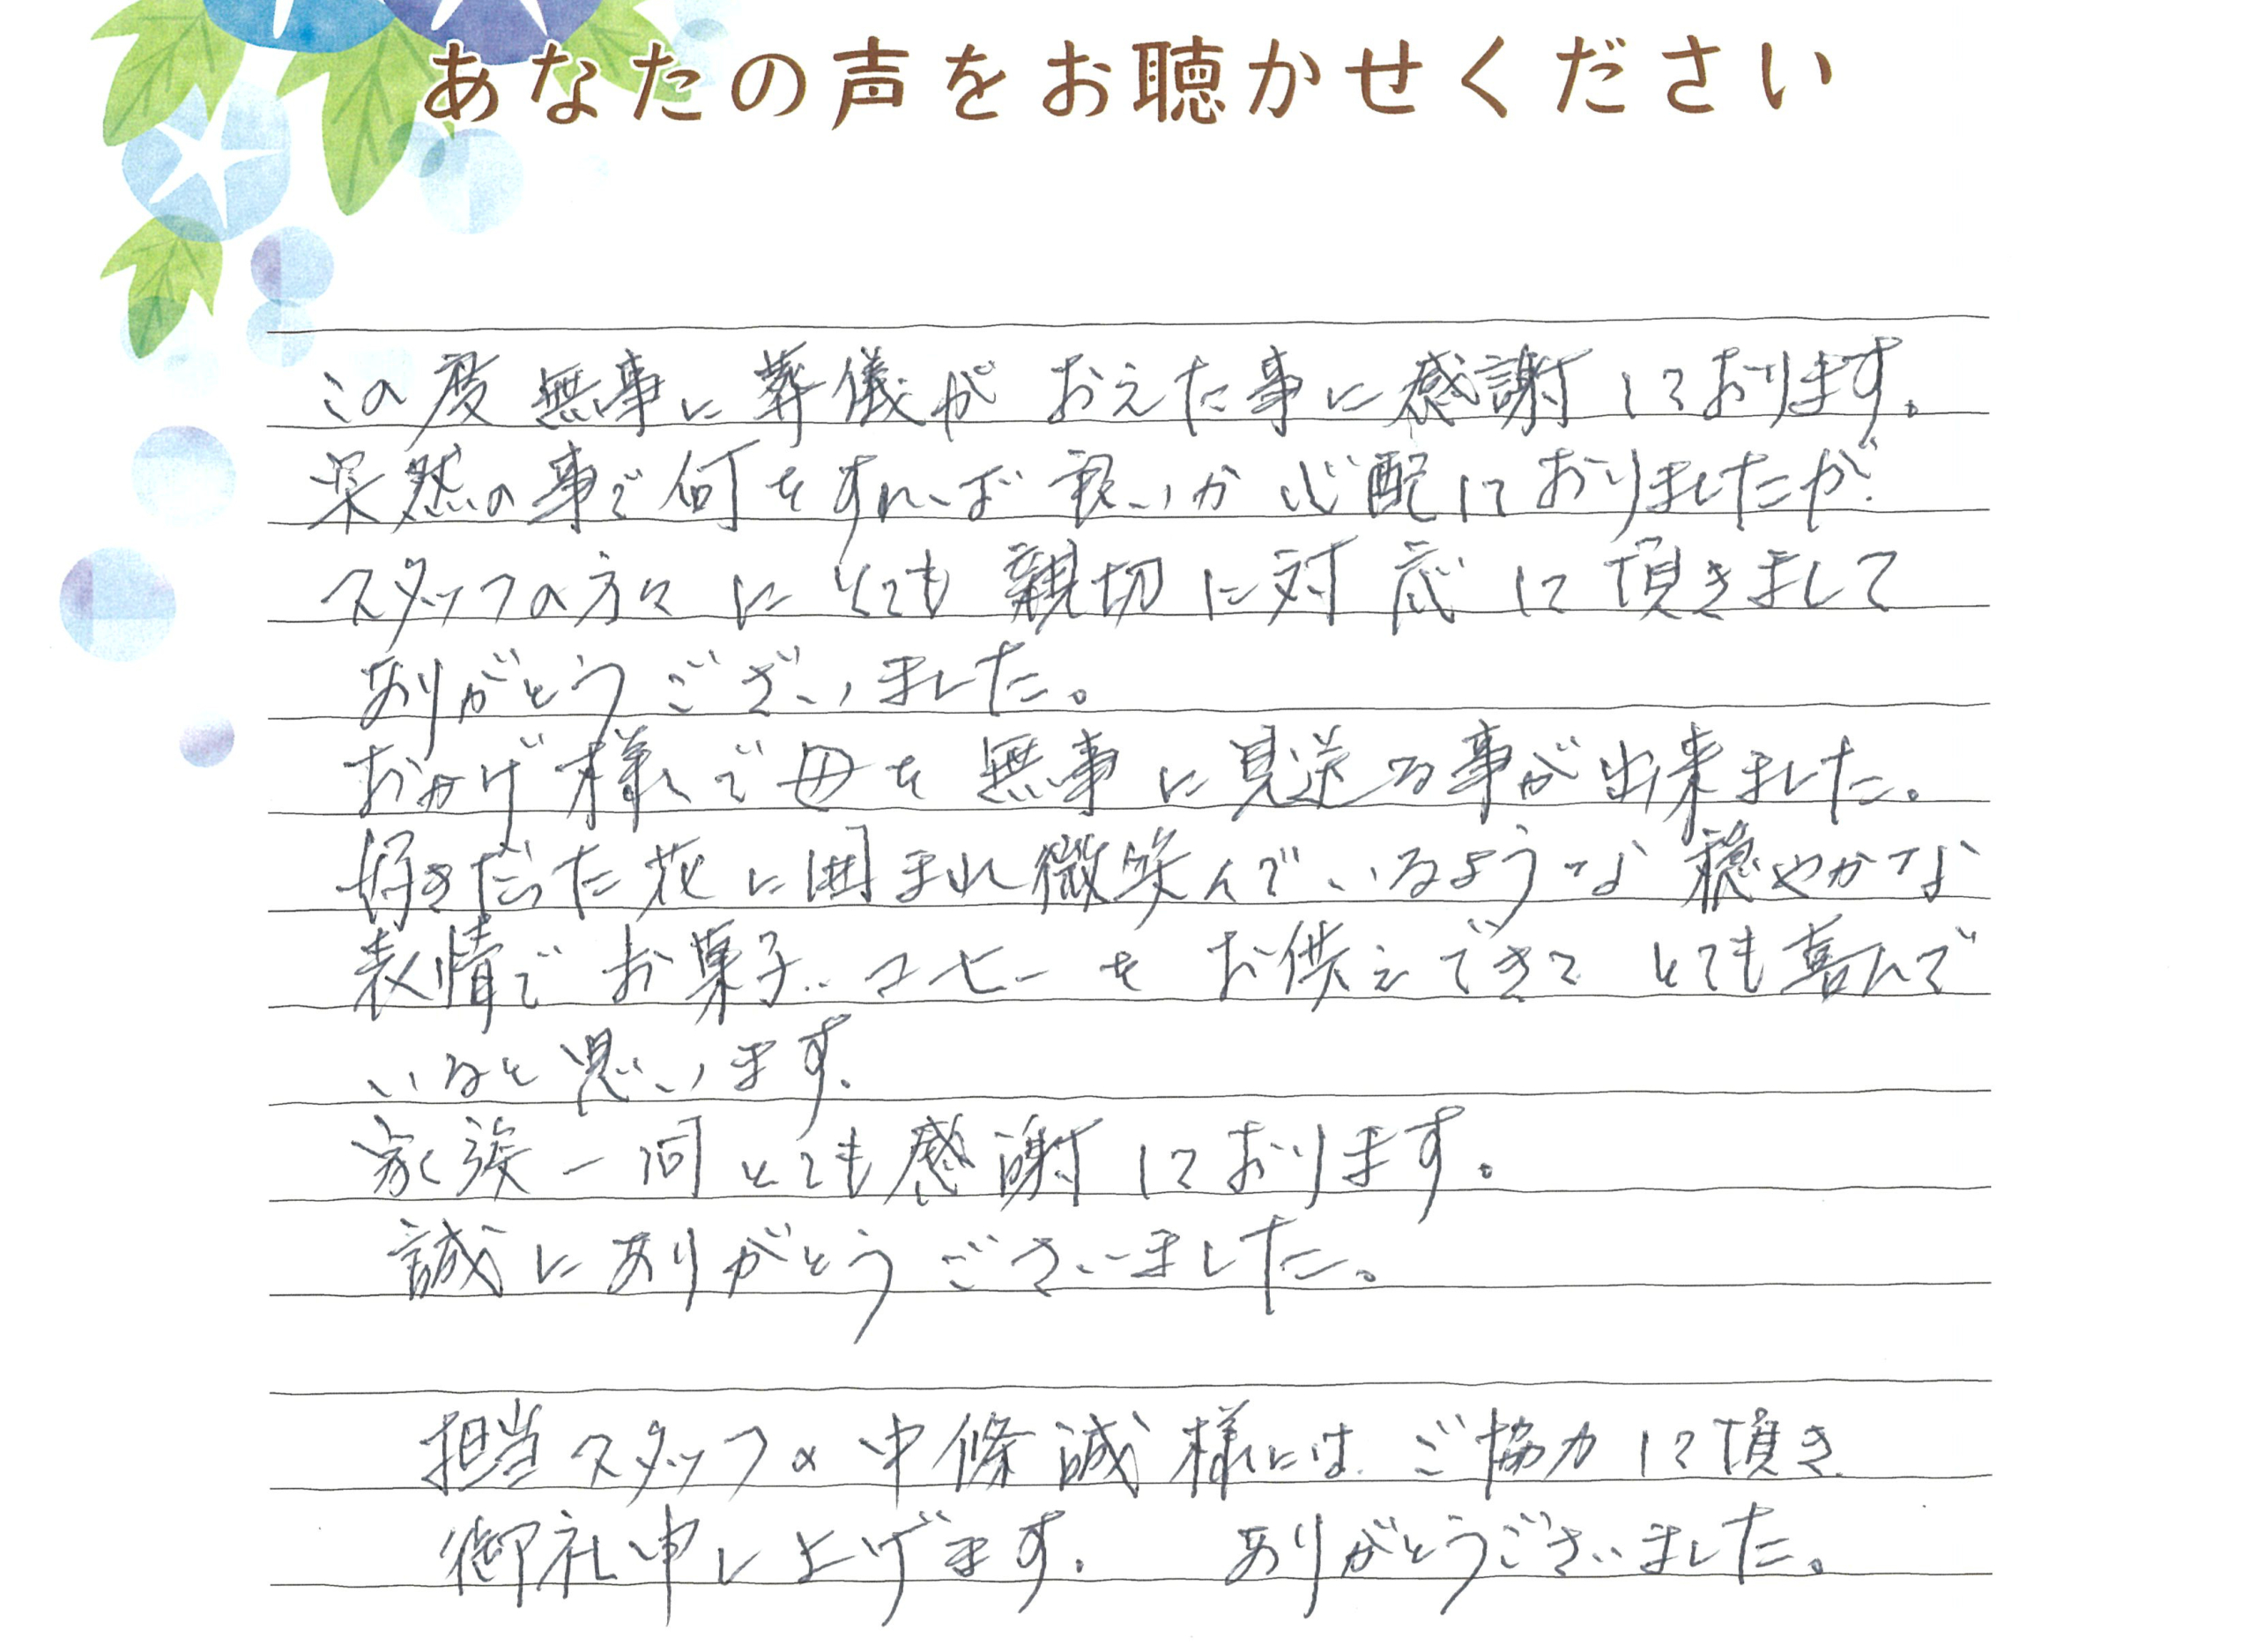 あなたの声をお聴かせください
この度無事に葬儀がおえた事に感謝しております。
突然の事で何をすれば良いか心配しておりましたが
スタッフの方々にとても親切に対応して頂きまして
ありがとうございました。
おかげ様で母を無事に見送る事が出来ました。
好きだった花に囲まれ微笑んでいるような穏やかな
表情でお菓子、コーヒーをお供えできてとても喜んで
いると思います。
家族一同とても感謝しております。
誠にありがとうございました。
担当スタッフの中條誠様には、ご協力して頂き
御礼申し上げます。 ありがとうございました。